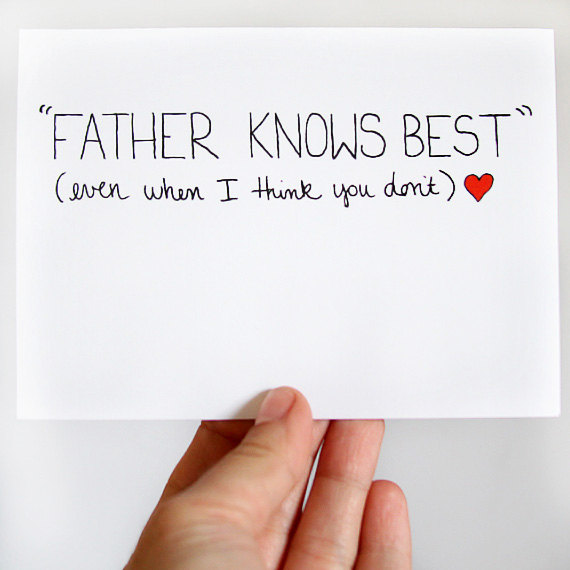 “FATHER KNOWS BEST”
(even when I think you don't) ♥